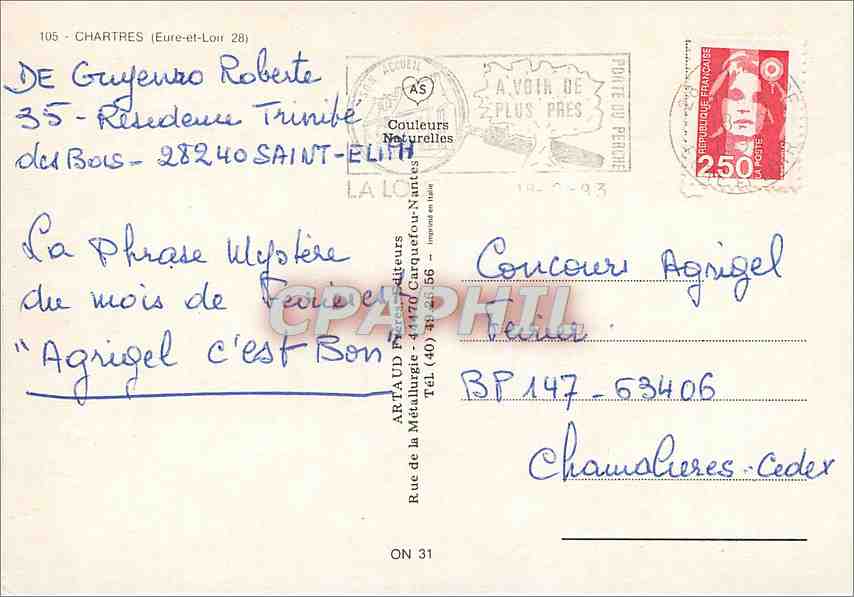 105 - CHARTRES (Eure-et-Loir 28)
DE Guyenro Roberte
35 - Résidence Trinité
des Bois - 28240 SAINT-ELIPH
La Phrase Mystère
du mois de Fevrier
"Agrigel c'est Bon"
ACCUEIL
AS
Couleurs
Naturelles
A VOIR DE
PLUS PRES
PORTE DU PERCHE
LA LO
RÉPUBLIQUE FRANÇAISE
2,50
LA POSTE
ARTAUD Frères, Editeurs
Rue de la Métallurgie - 44470 Carquefou-Nantes
Tél. (40) 49.28.56 - Imprimé en Italie
CPAPHIL
Concours Agrigel
Fevrier
BP 147 - 63406
Chamalieres - Cedex
ON 31